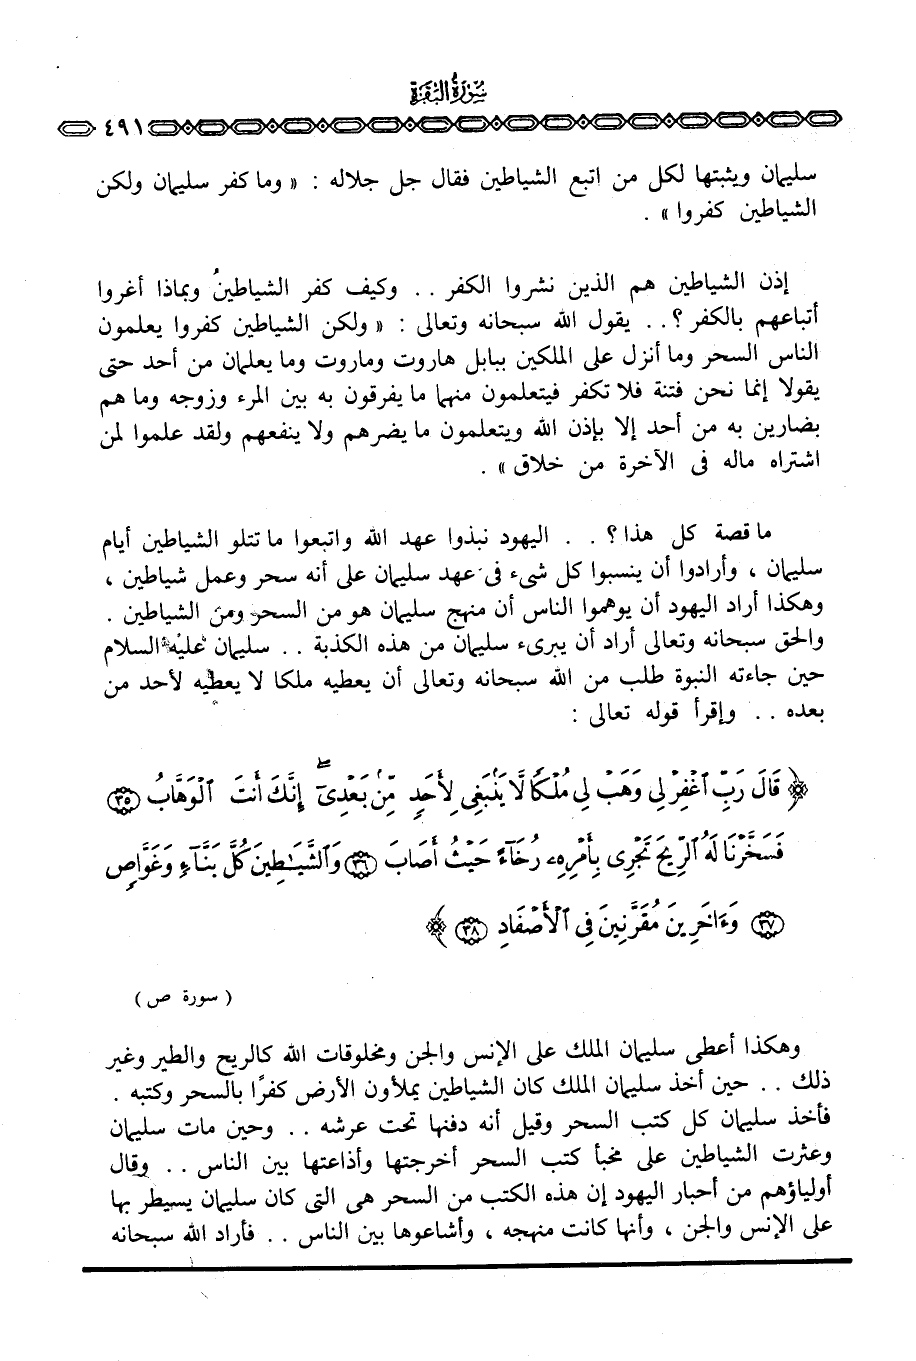 سورة البقرة
٤٩١
سليمان ويثبتها لكل من اتبع الشياطين فقال جل جلاله : « وما كفر سليمان ولكن
الشياطين كفروا » .
إذن الشياطين هم الذين نشروا الكفر . . وكيف كفر الشياطينُ وبماذا أغروا
أتباعهم بالكفر ؟ . . يقول الله سبحانه وتعالى : « ولكن الشياطين كفروا يعلمون
الناس السحر وما أنزل على الملكين ببابل هاروت وماروت وما يعلمان من أحد حتى
يقولا إنما نحن فتنة فلا تكفر فيتعلمون منهما ما يفرقون به بين المرء وزوجه وما هم
بضارين به من أحد إلا بإذن الله ويتعلمون ما يضرهم ولا ينفعهم ولقد علموا لمن
اشتراه ماله فى الآخرة من خلاق » .
ما قصة كل هذا ؟ . . اليهود نبذوا عهد الله واتبعوا ما تتلو الشياطين أيام
سليمان ، وأرادوا أن ينسبوا كل شىء فى عهد سليمان على أنه سحر وعمل شياطين ،
وهكذا أراد اليهود أن يوهموا الناس أن منهج سليمان هو من السحر ومن الشياطين .
والحق سبحانه وتعالى أراد أن يبرىء سليمان من هذه الكذبة . . سليمان عليه السلام
حين جاءته النبوة طلب من الله سبحانه وتعالى أن يعطيه ملكا لا يعطيه لأحد من
بعده . . وإقرأ قوله تعالى :
﴿ قَالَ رَبِّ ٱغْفِرْ لِى وَهَبْ لِى مُلْكًا لَّا يَنۢبَغِى لِأَحَدٍ مِّنۢ بَعْدِىٓ ۖ إِنَّكَ أَنتَ ٱلْوَهَّابُ ٣٥
فَسَخَّرْنَا لَهُ ٱلرِّيحَ تَجْرِى بِأَمْرِهِۦ رُخَآءً حَيْثُ أَصَابَ ٣٦ وَٱلشَّيَـٰطِينَ كُلَّ بَنَّآءٍ وَغَوَّاصٍ
٣٧ وَءَاخَرِينَ مُقَرَّنِينَ فِى ٱلْأَصْفَادِ ٣٨ ﴾
( سورة ص )
وهكذا أعطى سليمان الملك على الإنس والجن ومخلوقات الله كالريح والطير وغير
ذلك . . حين أخذ سليمان الملك كان الشياطين يملأون الأرض كفرًا بالسحر وكتبه .
فأخذ سليمان كل كتب السحر وقيل أنه دفنها تحت عرشه . . وحين مات سليمان
وعثرت الشياطين على مخبأ كتب السحر أخرجتها وأذاعتها بين الناس . . وقال
أولياؤهم من أحبار اليهود إن هذه الكتب من السحر هى التى كان سليمان يسيطر بها
على الإنس والجن ، وأنها كانت منهجه ، وأشاعوها بين الناس . . فأراد الله سبحانه